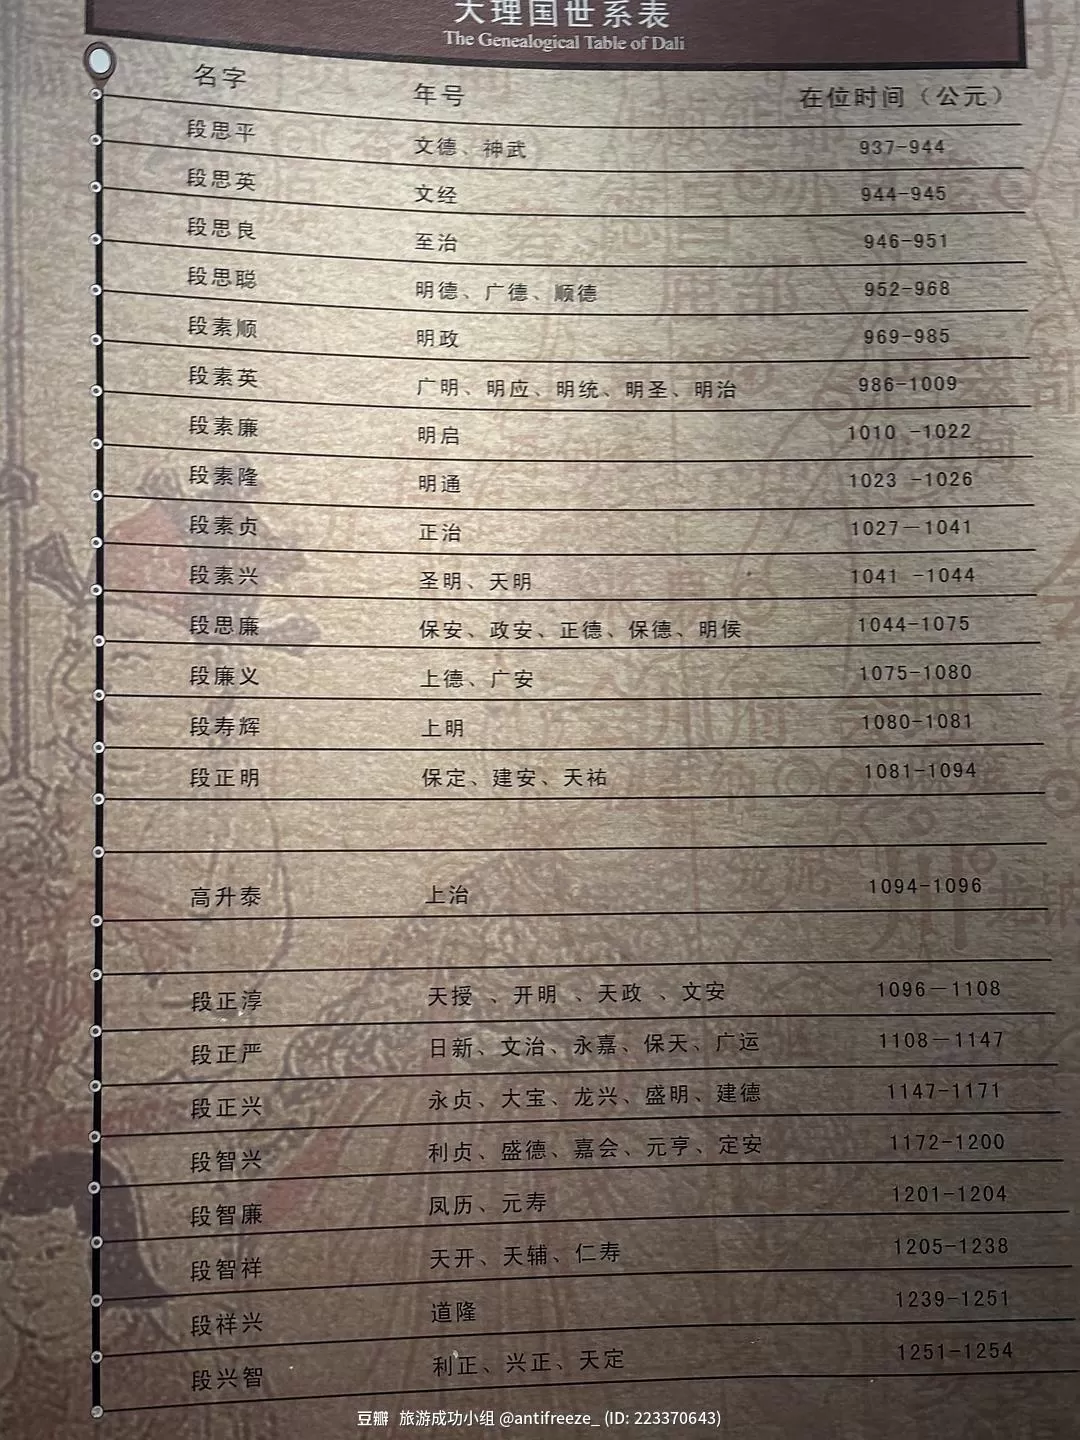 大理国世系表
The Genealogical Table of Dali
名字 年号 在位时间（公元）
段思平 文德、神武 937-944
段思英 文经 944-945
段思良 至治 946-951
段思聪 明德、广德、顺德 952-968
段素顺 明政 969-985
段素英 广明、明应、明统、明圣、明治 986-1009
段素廉 明启 1010 -1022
段素隆 明通 1023 -1026
段素贞 正治 1027－1041
段素兴 圣明、天明 1041 -1044
段思廉 保安、政安、正德、保德、明侯 1044-1075
段廉义 上德、广安 1075-1080
段寿辉 上明 1080-1081
段正明 保定、建安、天祐 1081-1094
高升泰 上治 1094-1096
段正淳 天授 、开明 、天政 、文安 1096－1108
段正严 日新、文治、永嘉、保天、广运 1108－1147
段正兴 永贞、大宝、龙兴、盛明、建德 1147-1171
段智兴 利贞、盛德、嘉会、元亨、定安 1172-1200
段智廉 凤历、元寿 1201-1204
段智祥 天开、天辅、仁寿 1205-1238
段祥兴 道隆 1239-1251
段兴智 利正、兴正、天定 1251-1254
豆瓣 旅游成功小组 @antifreeze_ (ID: 223370643)